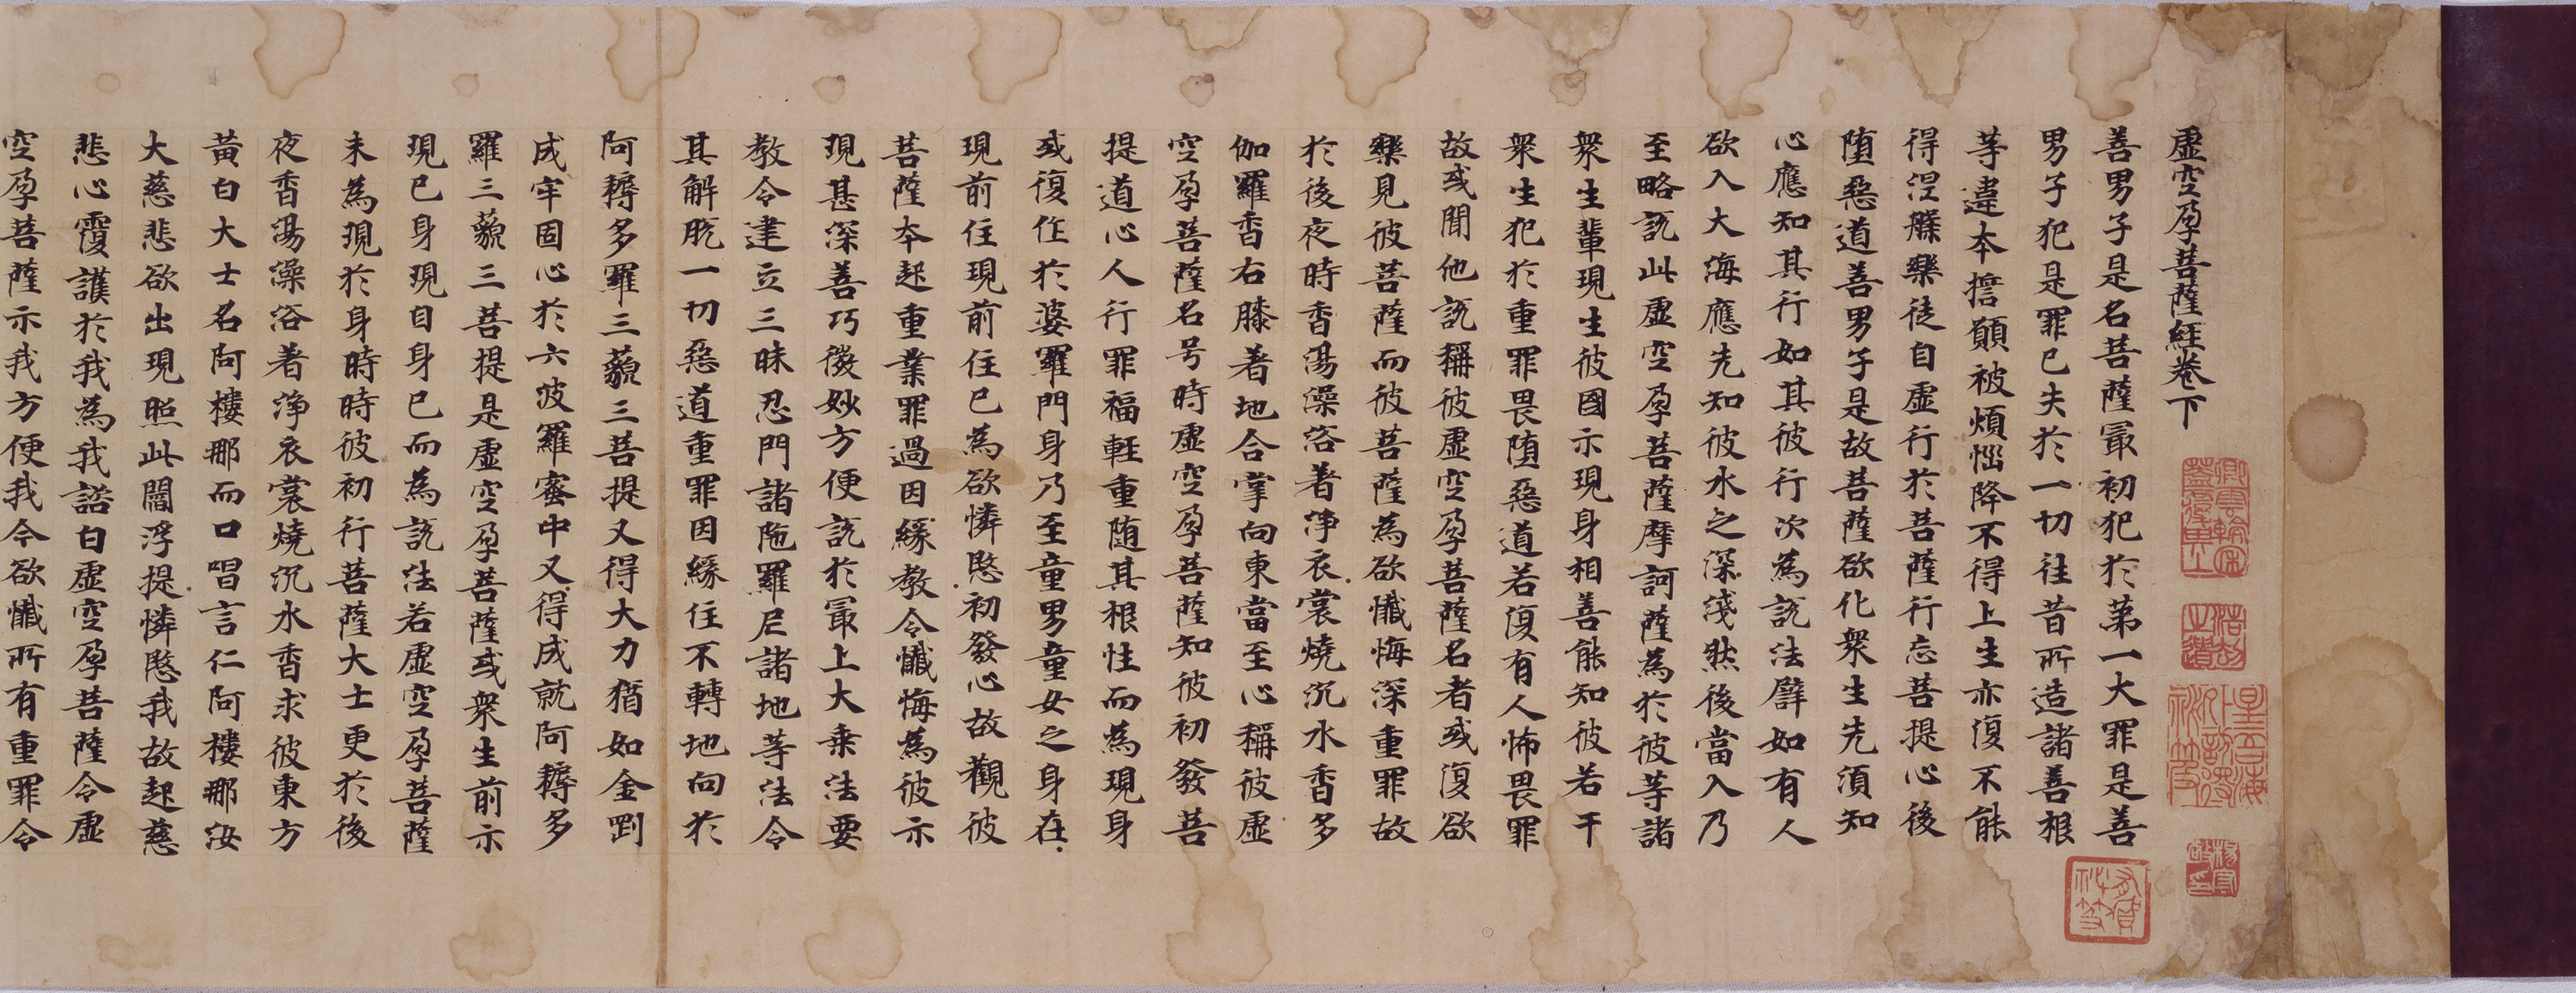 虛空孕菩薩經卷下
善男子是名菩薩冣初犯於第一大罪是善
男子犯是罪已失於一切往昔所造諸善根
等違本擔願被煩惱降不得上生亦復不能
得涅槃樂徒自虛行於菩薩行忘菩提心後
墮惡道善男子是故菩薩欲化衆生先湏知
心應知其行如其彼行次為説法譬如有人
欲入大海應先知彼水之深淺然後當入乃
至略説此虛空孕菩薩摩訶薩為於彼等諸
衆生輩現生彼國示現身相善能知彼若干
衆生犯於重罪畏墮惡道若復有人怖畏罪
故或聞他説稱彼虛空孕菩薩名者或復欲
樂見彼菩薩而彼菩薩為欲懺悔深重罪故
於後夜時香湯澡浴著淨衣裳燒沉水香多
伽羅香右膝著地合掌向東當至心稱彼虛
空孕菩薩名号時虛空孕菩薩知彼初發菩
提道心人行罪福輕重随其根性而為現身
或復作於婆羅門身乃至童男童女之身在
現前住現前住已為欲憐愍初發心故觀彼
菩薩本起重業罪過因緣教令懺悔為彼示
現甚深善巧微妙方便説於冣上大乘法要
教令建立三昧忍門諸陁羅尼諸地等法令
其解脱一切惡道重罪因緣住不轉地向於
阿耨多羅三藐三菩提又得大力猶如金剛
成牢固心於六波羅蜜中又得成就阿耨多
羅三藐三菩提是虛空孕菩薩或衆生前示
現已身現自身已而為説法若虛空孕菩薩
未為現於身時時彼初行菩薩大士更於後
夜香湯澡浴著淨衣裳燒沉水香求彼東方
黃白大士名阿樓那而口唱言仁阿樓那汝
大慈悲欲出現照此閻浮提憐愍我故起慈
悲心覆護於我為我諮白虛空孕菩薩令虛
空孕菩薩示我方便我今欲懺所有重罪令